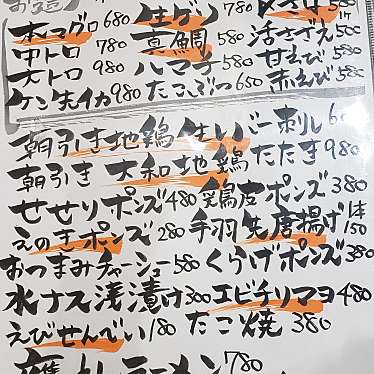 お造り
本マグロ 680 生ガキ
中トロ 780 真鯛 580 活さざえ 500
大トロ 980 ハマチ 580 甘えび 580
ケン先イカ 980 たこぶつ 650 赤えび 580
朝引き地鶏生レバー刺し
朝引き 大和地鶏たたき 980
せせりポンズ 480 鶏皮ポンズ 380
えのきポンズ 280 手羽先唐揚げ 1本150
おつまみチャーシュー 580 くらげポンズ 380
水ナス浅漬け 300 エビチリマヨ 480
えびせんべい 180 たこ焼 380
ラーメン 780